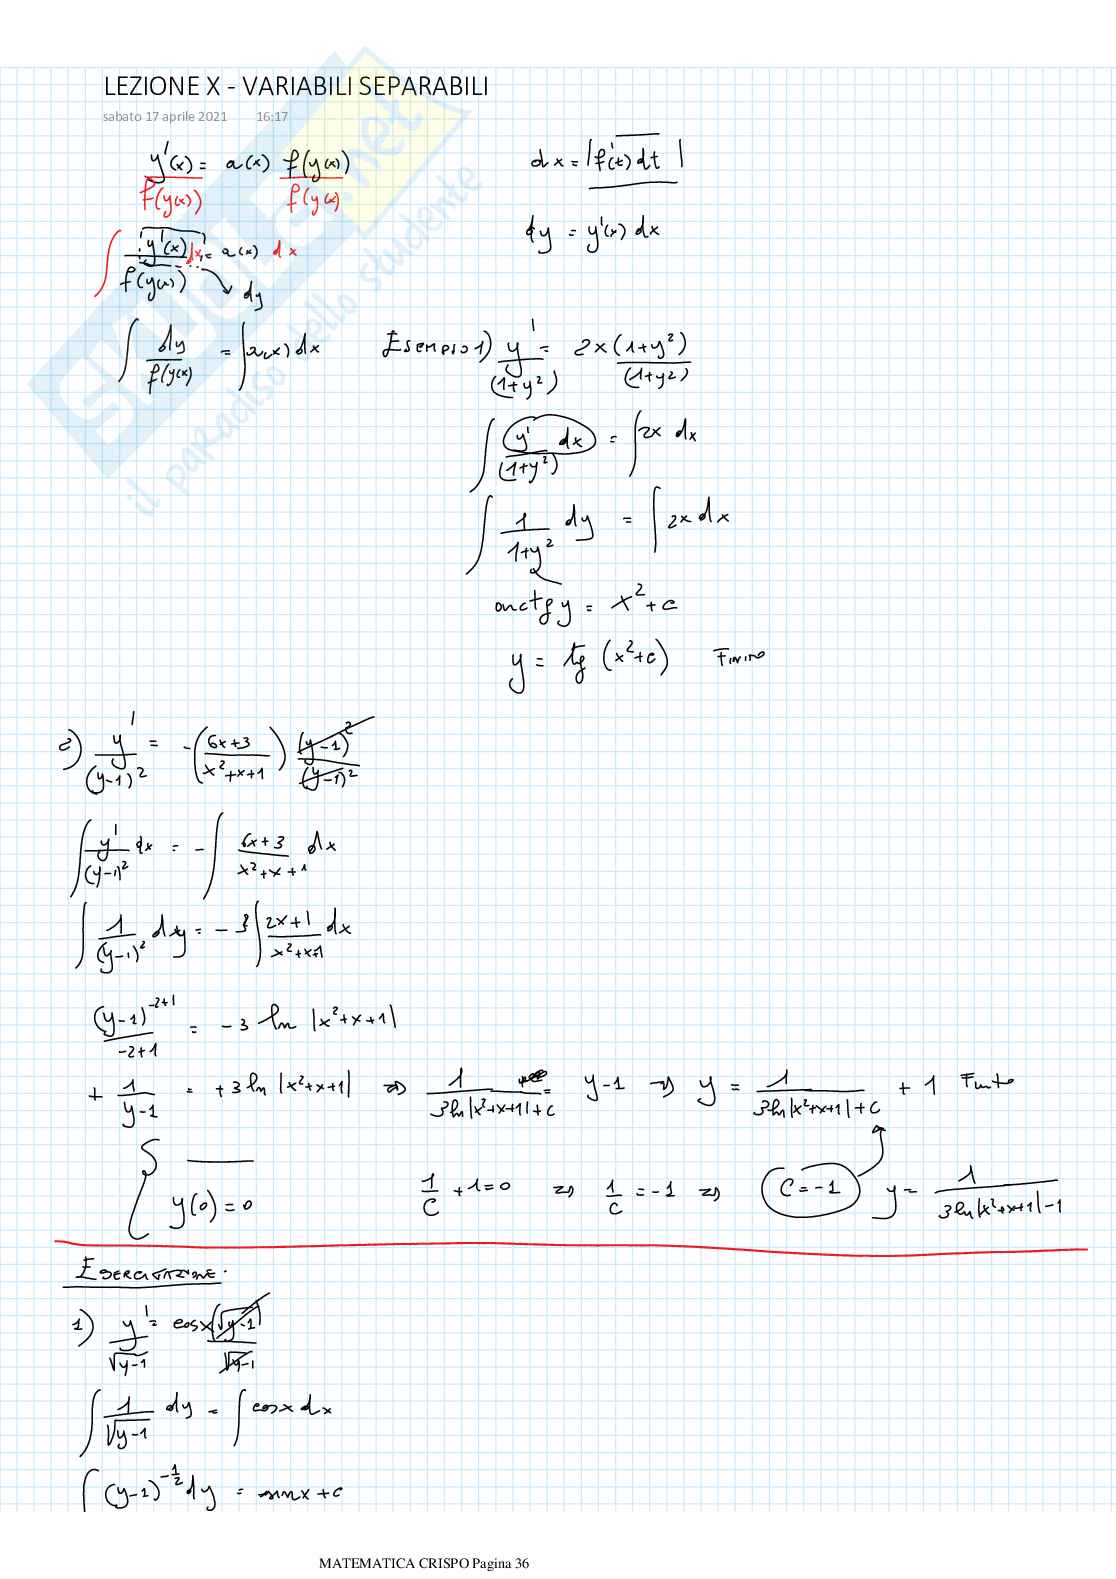 LEZIONE X - VARIABILI SEPARABILI
sabato 17 aprile 2021 16:17
y'(x)/f(y(x)) = a(x) f(y(x))/f(y(x))
dx = |f'(t) dt|
dy = y'(x) dx
∫ y'(x) dx / f(y(x)) = a(x) dx
dy
∫ dy/f(y(x)) = ∫ a(x) dx
Esempio 1) y'/(1+y²) = 2x (1+y²)/(1+y²)
∫ y' dx/(1+y²) = ∫ 2x dx
∫ 1/(1+y²) dy = ∫ 2x dx
arctg y = x² + c
y = tg (x²+c) Finito
2) y'/(y-1)² = -((6x+3)/(x²+x+1)) (y-1)²/(y-1)²
∫ y'/(y-1)² dx = - ∫ (6x+3)/(x²+x+1) dx
∫ 1/(y-1)² dy = -3 ∫ (2x+1)/(x²+x+1) dx
(y-1)^(-2+1)/(-2+1) = -3 ln |x²+x+1|
+ 1/(y-1) = +3 ln |x²+x+1| ⇒ 1/(3 ln|x²+x+1|+c) = y-1 ⇒ y = 1/(3 ln|x²+x+1|+c) + 1 Finito
{ y(0) = 0
1/c + 1 = 0 ⇒ 1/c = -1 ⇒ c = -1 y = 1/(3 ln|x²+x+1|-1)
Esercitazione.
1) y'/√(y-1) = cosx (√(y-1))/√(y-1)
∫ 1/√(y-1) dy = ∫ cosx dx
∫ (y-1)^(-1/2) dy = sinx + c
MATEMATICA CRISPO Pagina 36
SKUOLA.net
il paradiso dello studente